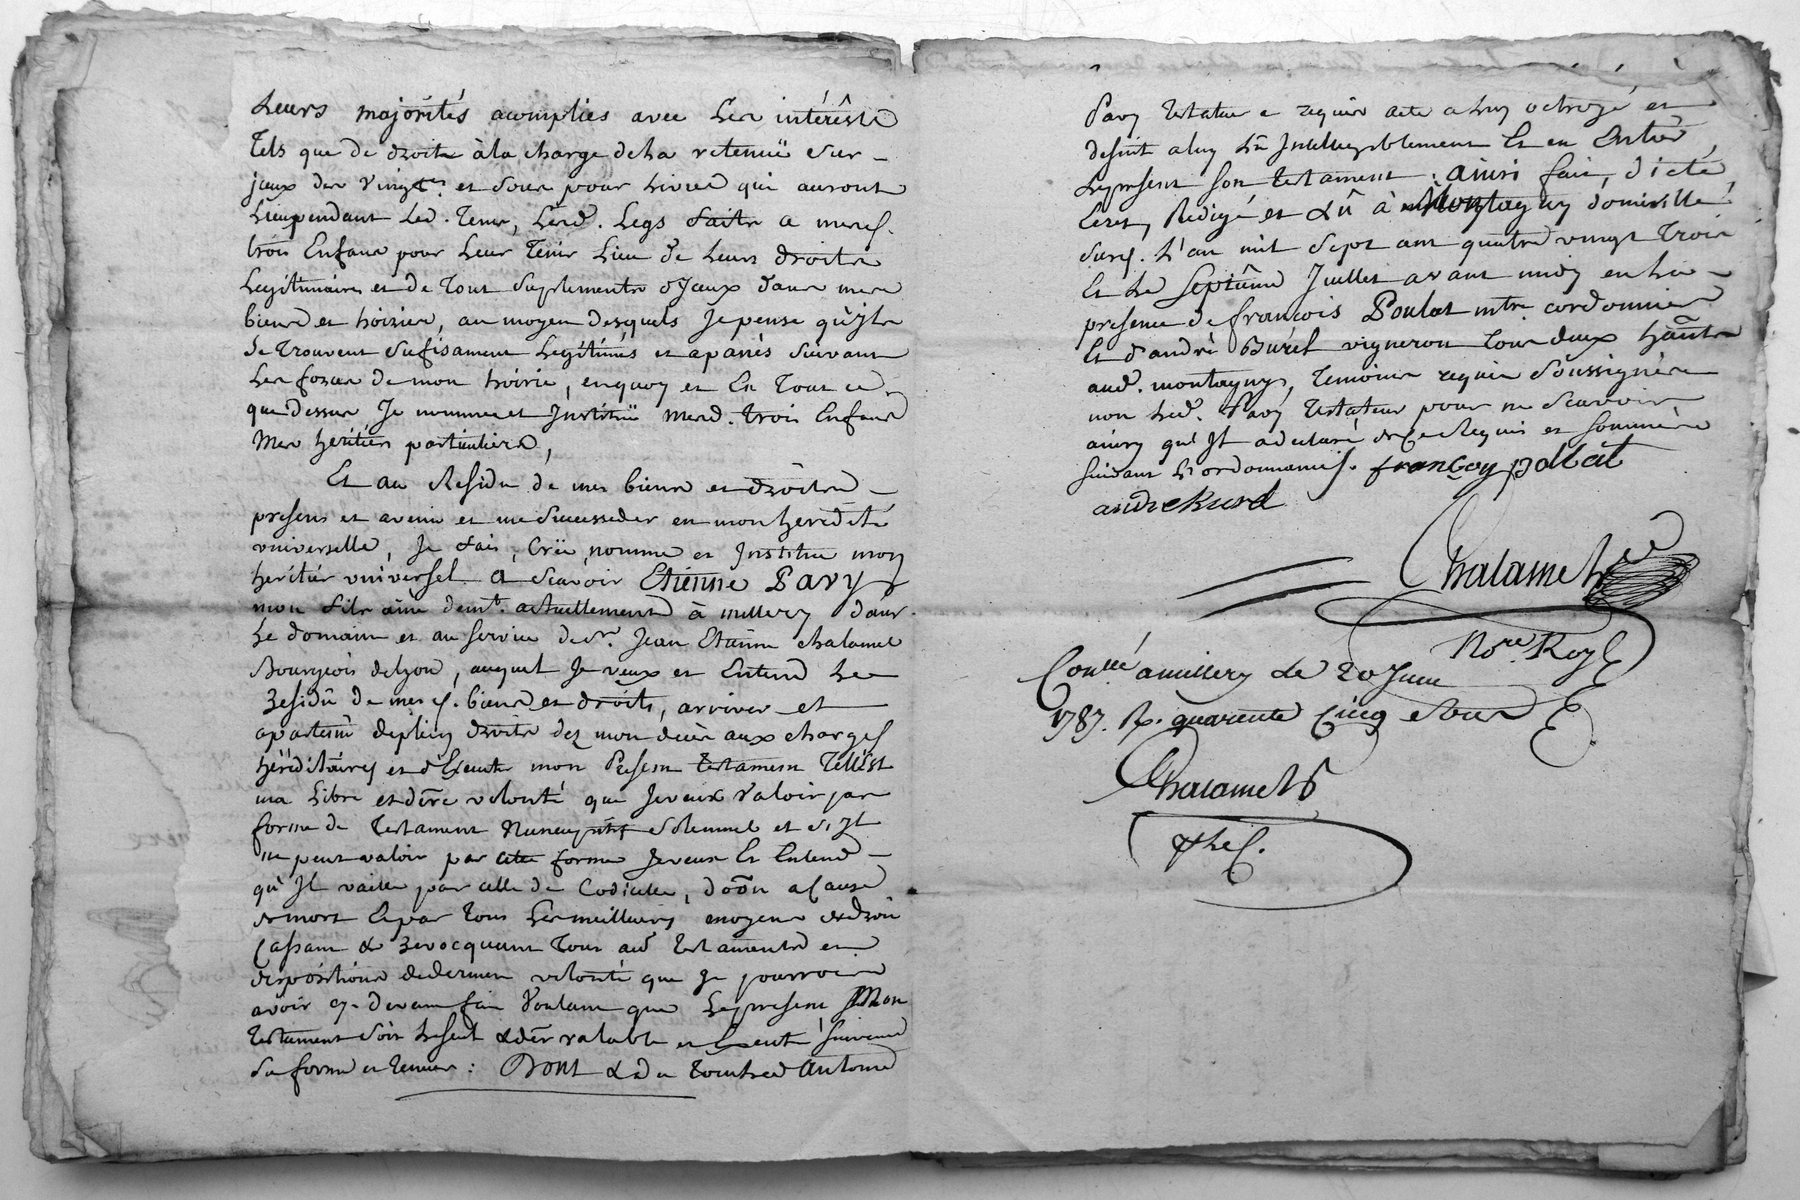 Leurs majorités acomplies avec Les intérêsts
Tels que de droits à la charge de la retenuë sur
jceux des vingt.es et sous pour Livres qui auront
Lieu pendant Led. Tems, Lesd. Legs faits a mesd.
trois Enfans pour Leur Tenir Lieu de Leurs droits
Legitimaires et de Tout suplements d'Jceux dans mes
biens et hoiries, au moyen desquels Je pense qu'jls
se trouvent sufisament Legitimés et apanés suivant
Les forces de mon hoirie, en quoy et En Tout ce
que dessus Je nomme et Jnstituë mesd. trois Enfans
Mes heritiers particuliers,
Et au Residu de mes biens et droits
presens et avenir et me succeder en mon heredité
universelle, Je fais, Crée, nomme et Jnstitue mon
heritier universel a scavoir Etienne Pavy
mon fils aine demt. actuellement à millery dans
Le domaine et au service de sr. Jean Etienne chalamel
Bourgeois de Lyon, auquel Je veux et Entend Le
Residû de mesd. biens et droits, arriver et
apartenir de plein droits dez mon décès aux charges
héréditaires et d'Executer mon Present testament Tel est
ma Libre et derre volonté que Je veux valoir par
forme de Testament Nuncupatif solemnel et s'Jl
ne peut valoir par cette forme Je veux Et Entend
qu'Jl vaille par celle de Codicille, doôn a Cause
de mort Et par Tous Les meilleurs moyens de droit
Cassant & revocquant Tous aud testaments et
dispositions de derniere volonté que Je pourrois
avoir cy-devant fait Voulant que Le present Mon
Testament soit Le seul & der valable et Executé suivant
sa forme et teneur : Dont & du tout Led Antoine
Pavy testateur a requis acte a Luy octroyé et
desuit a luy Lû Jntelligiblement Et en Entier
Le present son testament : ainsi fait, dicté,
Ecrit, Redigé et Lû à Montagny domicille
susd. L'an mil sept cent quatre vingt Trois
Et Le septième Juillet avant midy en La
presence de françois Poulat mtre cordonnier
Et d'andré Burel vigneron Tous deux habitts
aud. montagny, Temoins requis soussignés
non Led. Pavy testateur pour ne scavoir
ainsy qu'Jl a declaré de Ce Requis et sommé
suivant L'ordonnance. françoy pollat
andre
Chalamel
Nore. Royl
Conllé a millery Le 20 Juin
1787. R. quarente Cinq sous
Chalamel